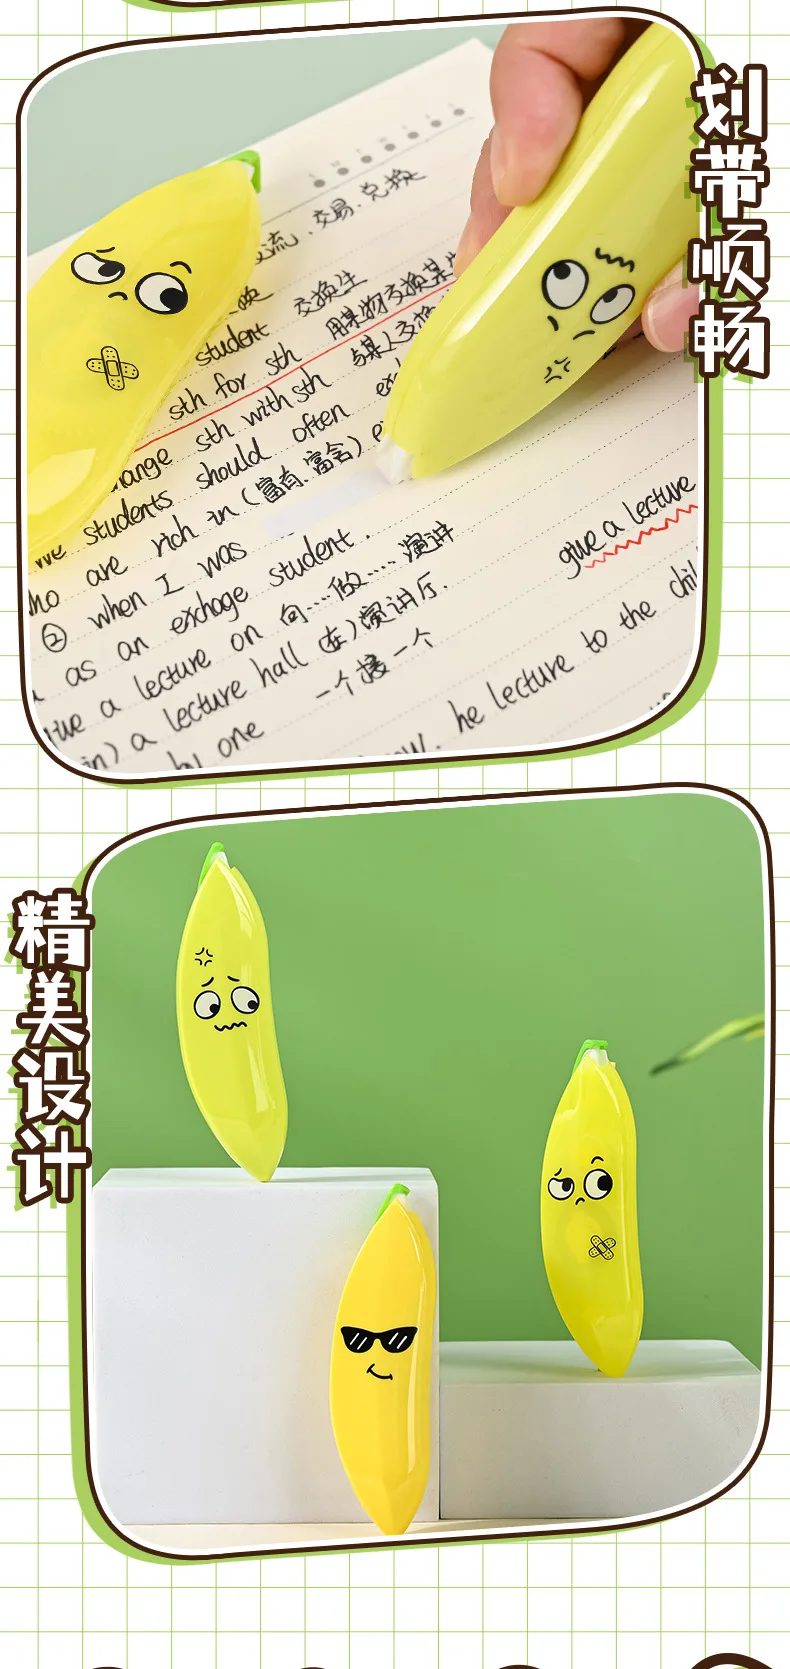 划带顺畅
交流、交易、兑换
student 交换生
sth for sth 用某物交换某
sth with sth 与某人交换
students should often
who are rich in (富有,富含)
② when I was
as an exchoge student.
give a lecture
a lecture on 向…做…演讲
in) a lecture hall (在)演讲厅.
by one 一个接一个
he lecture to the chil
精美设计